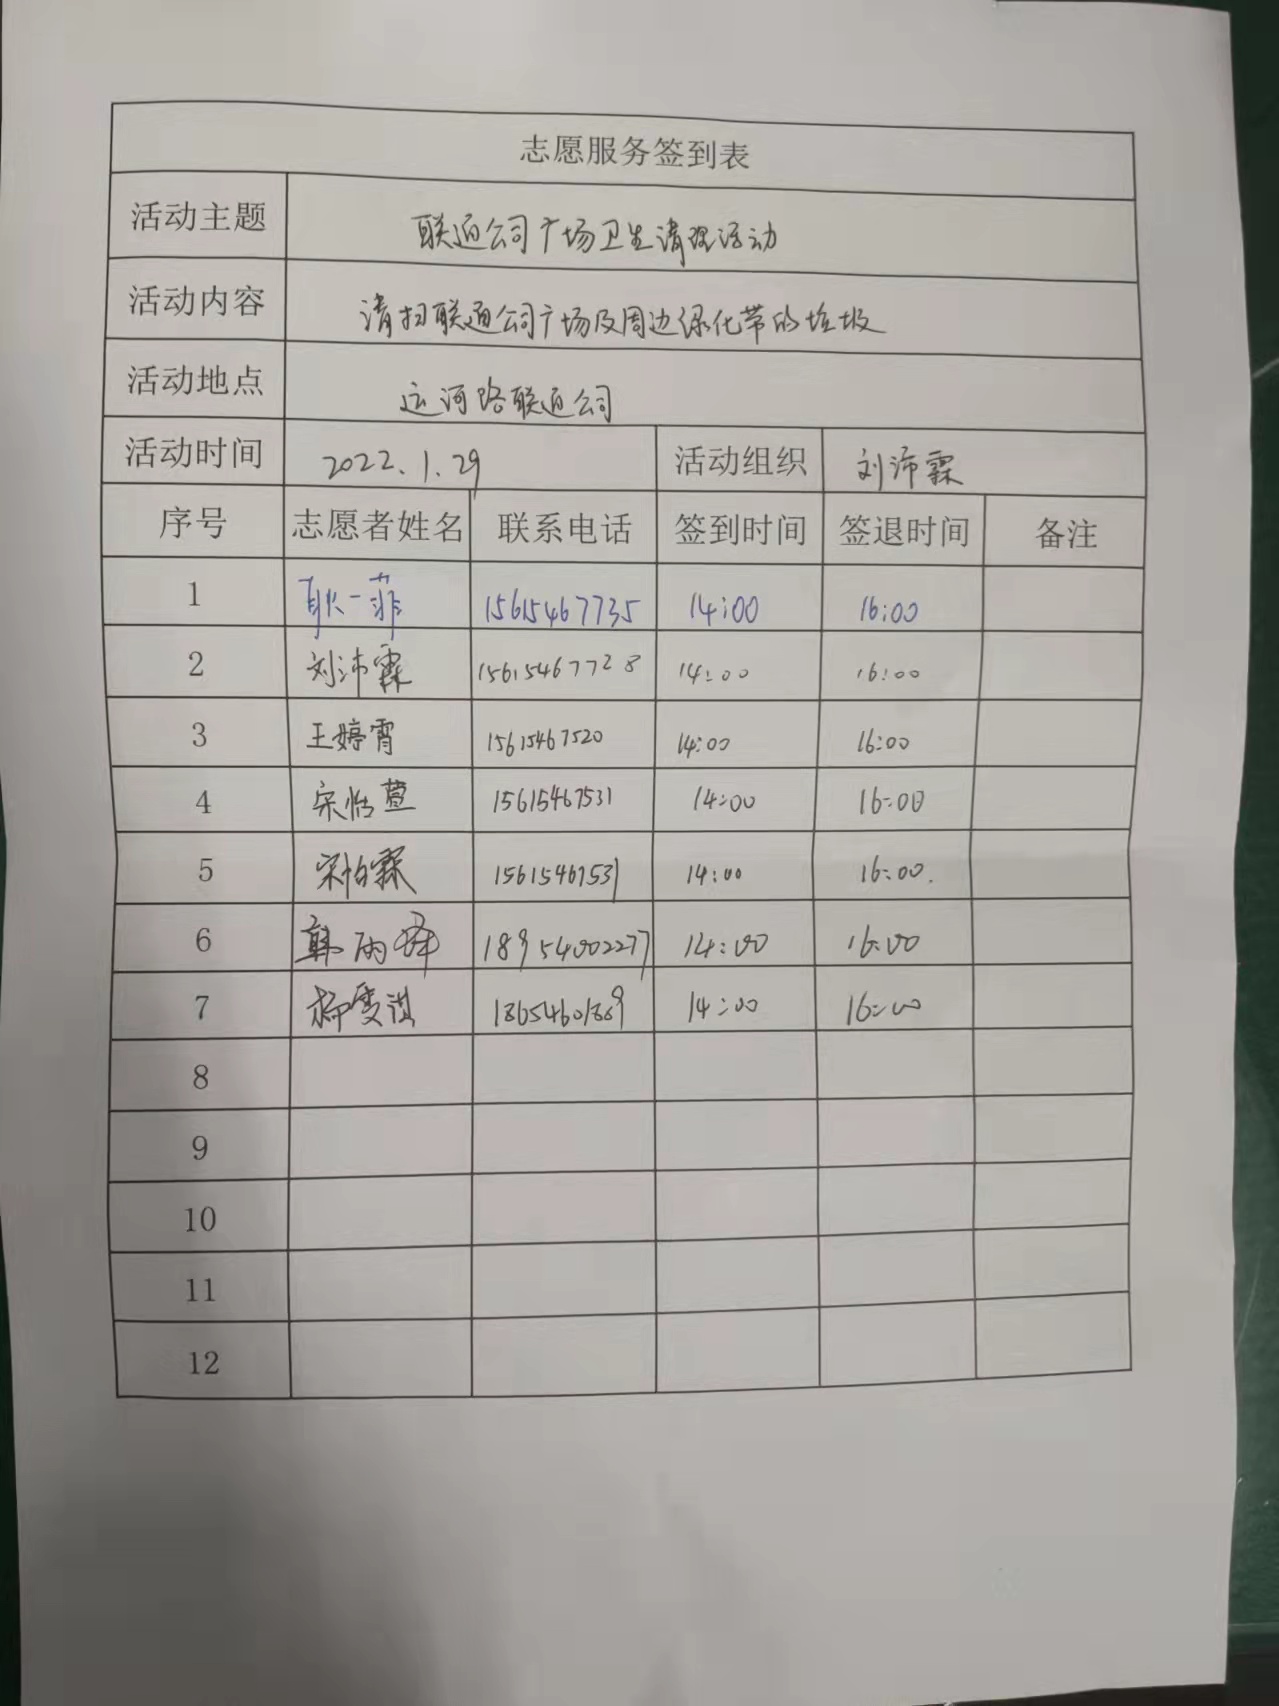 志愿服务签到表
活动主题 联通公司广场卫生清理活动
活动内容 清扫联通公司广场及周边绿化带的垃圾
活动地点 运河路联通公司
活动时间 2022.1.29 活动组织 刘沛霖
序号 志愿者姓名 联系电话 签到时间 签退时间 备注
1 耿一菲 15615467735 14:00 16:00
2 刘沛霖 15615467728 14:00 16:00
3 王婷霄 15615467520 14:00 16:00
4 宋怡萱 15615467531 14:00 16:00
5 宋怡霖 15615467531 14:00 16:00.
6 韩雨 18954002277 14:00 16:00
7 14:00 16:00
8
9
10
11
12